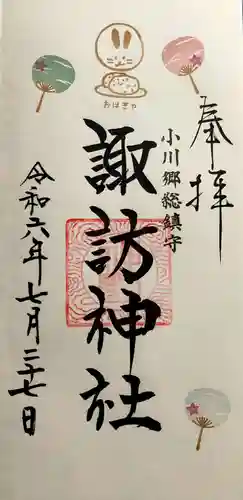 おはぎや
奉拝
小川郷総鎮守
諏訪神社
令和六年七月二十七日